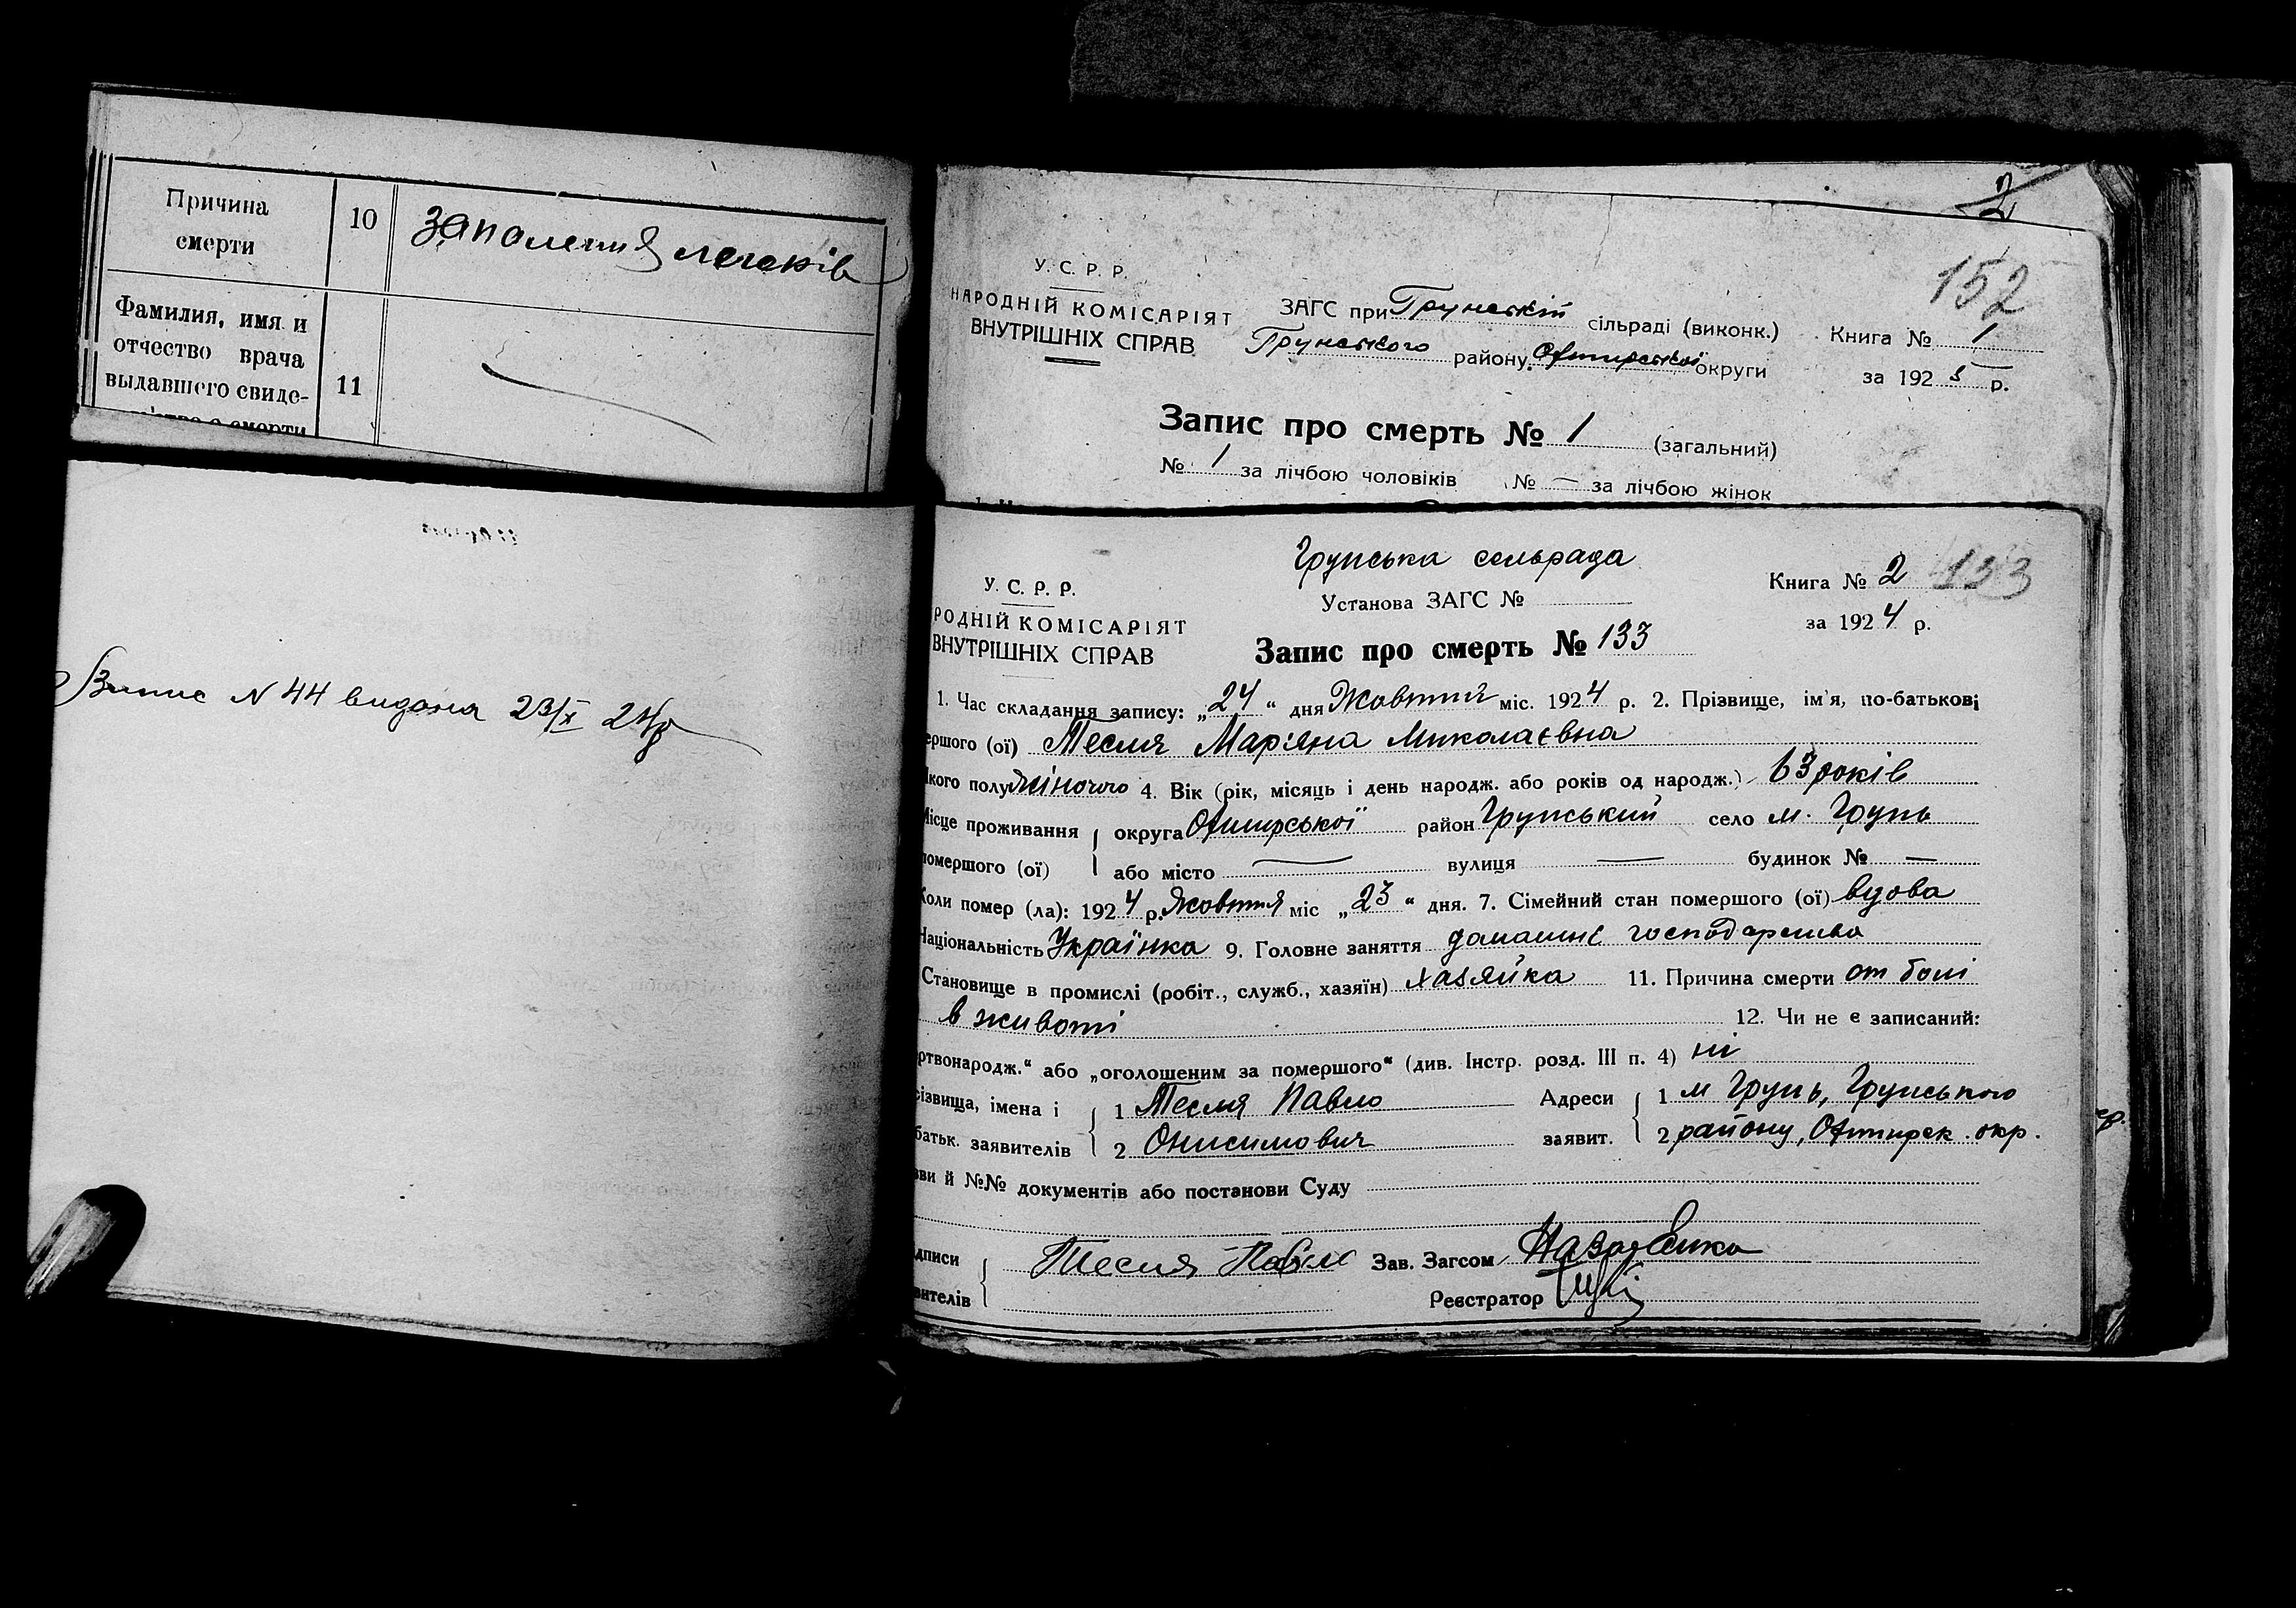 Причина
смерти
10
запалення легеків
Фамилия, имя и
отчество врача
выдавшего свиде-
11
Випис N 44 видана 23/X 24р
2
152
У. С. Р. Р.
НАРОДНІЙ КОМІСАРІЯТ
ВНУТРІШНІХ СПРАВ
ЗАГС при Грунській сільраді (виконк.)
Грунського району Охтирської округи
Книга № 1
за 1925 р.
Запис про смерть № 1 (загальний)
№ 1 за лічбою чоловіків № — за лічбою жінок
Грунська сельрада
У. С. Р. Р.
РОДНІЙ КОМІСАРІЯТ
ВНУТРІШНІХ СПРАВ
Установа ЗАГС №
Книга № 2 133
за 1924 р.
Запис про смерть № 133
1. Час складання запису: „24“ дня Жовтня міс. 1924 р. 2. Прізвище, ім'я, по-батькові
ершого (ої) Тесля Мар'яна Миколаєвна
якого полу жіночого 4. Вік (рік, місяць і день народж. або років од народж.) 63 років
Місце проживання округа Охтирської район Грунський село м. Грунь
помершого (ої) або місто — вулиця — будинок № —
Коли помер (ла): 1924 р. Жовтня міс „23“ дня. 7. Сімейний стан помершого (ої) вдова
Національність Українка 9. Головне заняття домашнє господарство
Становище в промислі (робіт., служб., хазяїн) хазяйка 11. Причина смерти от болі
в животі 12. Чи не є записаний:
ртвонародж.“ або „оголошеним за помершого“ (див. Інстр. розд. III п. 4) ні
різвища, імена і 1 Тесля Павло Адреси 1 м Грунь, Грунського
батьк. заявителів 2 Онисимович заявит. 2 району, Охтирск. окр.
зви й №№ документів або постанови Суду
дписи Тесля Павло Зав. Загсом Назаренко
вителів Реєстратор